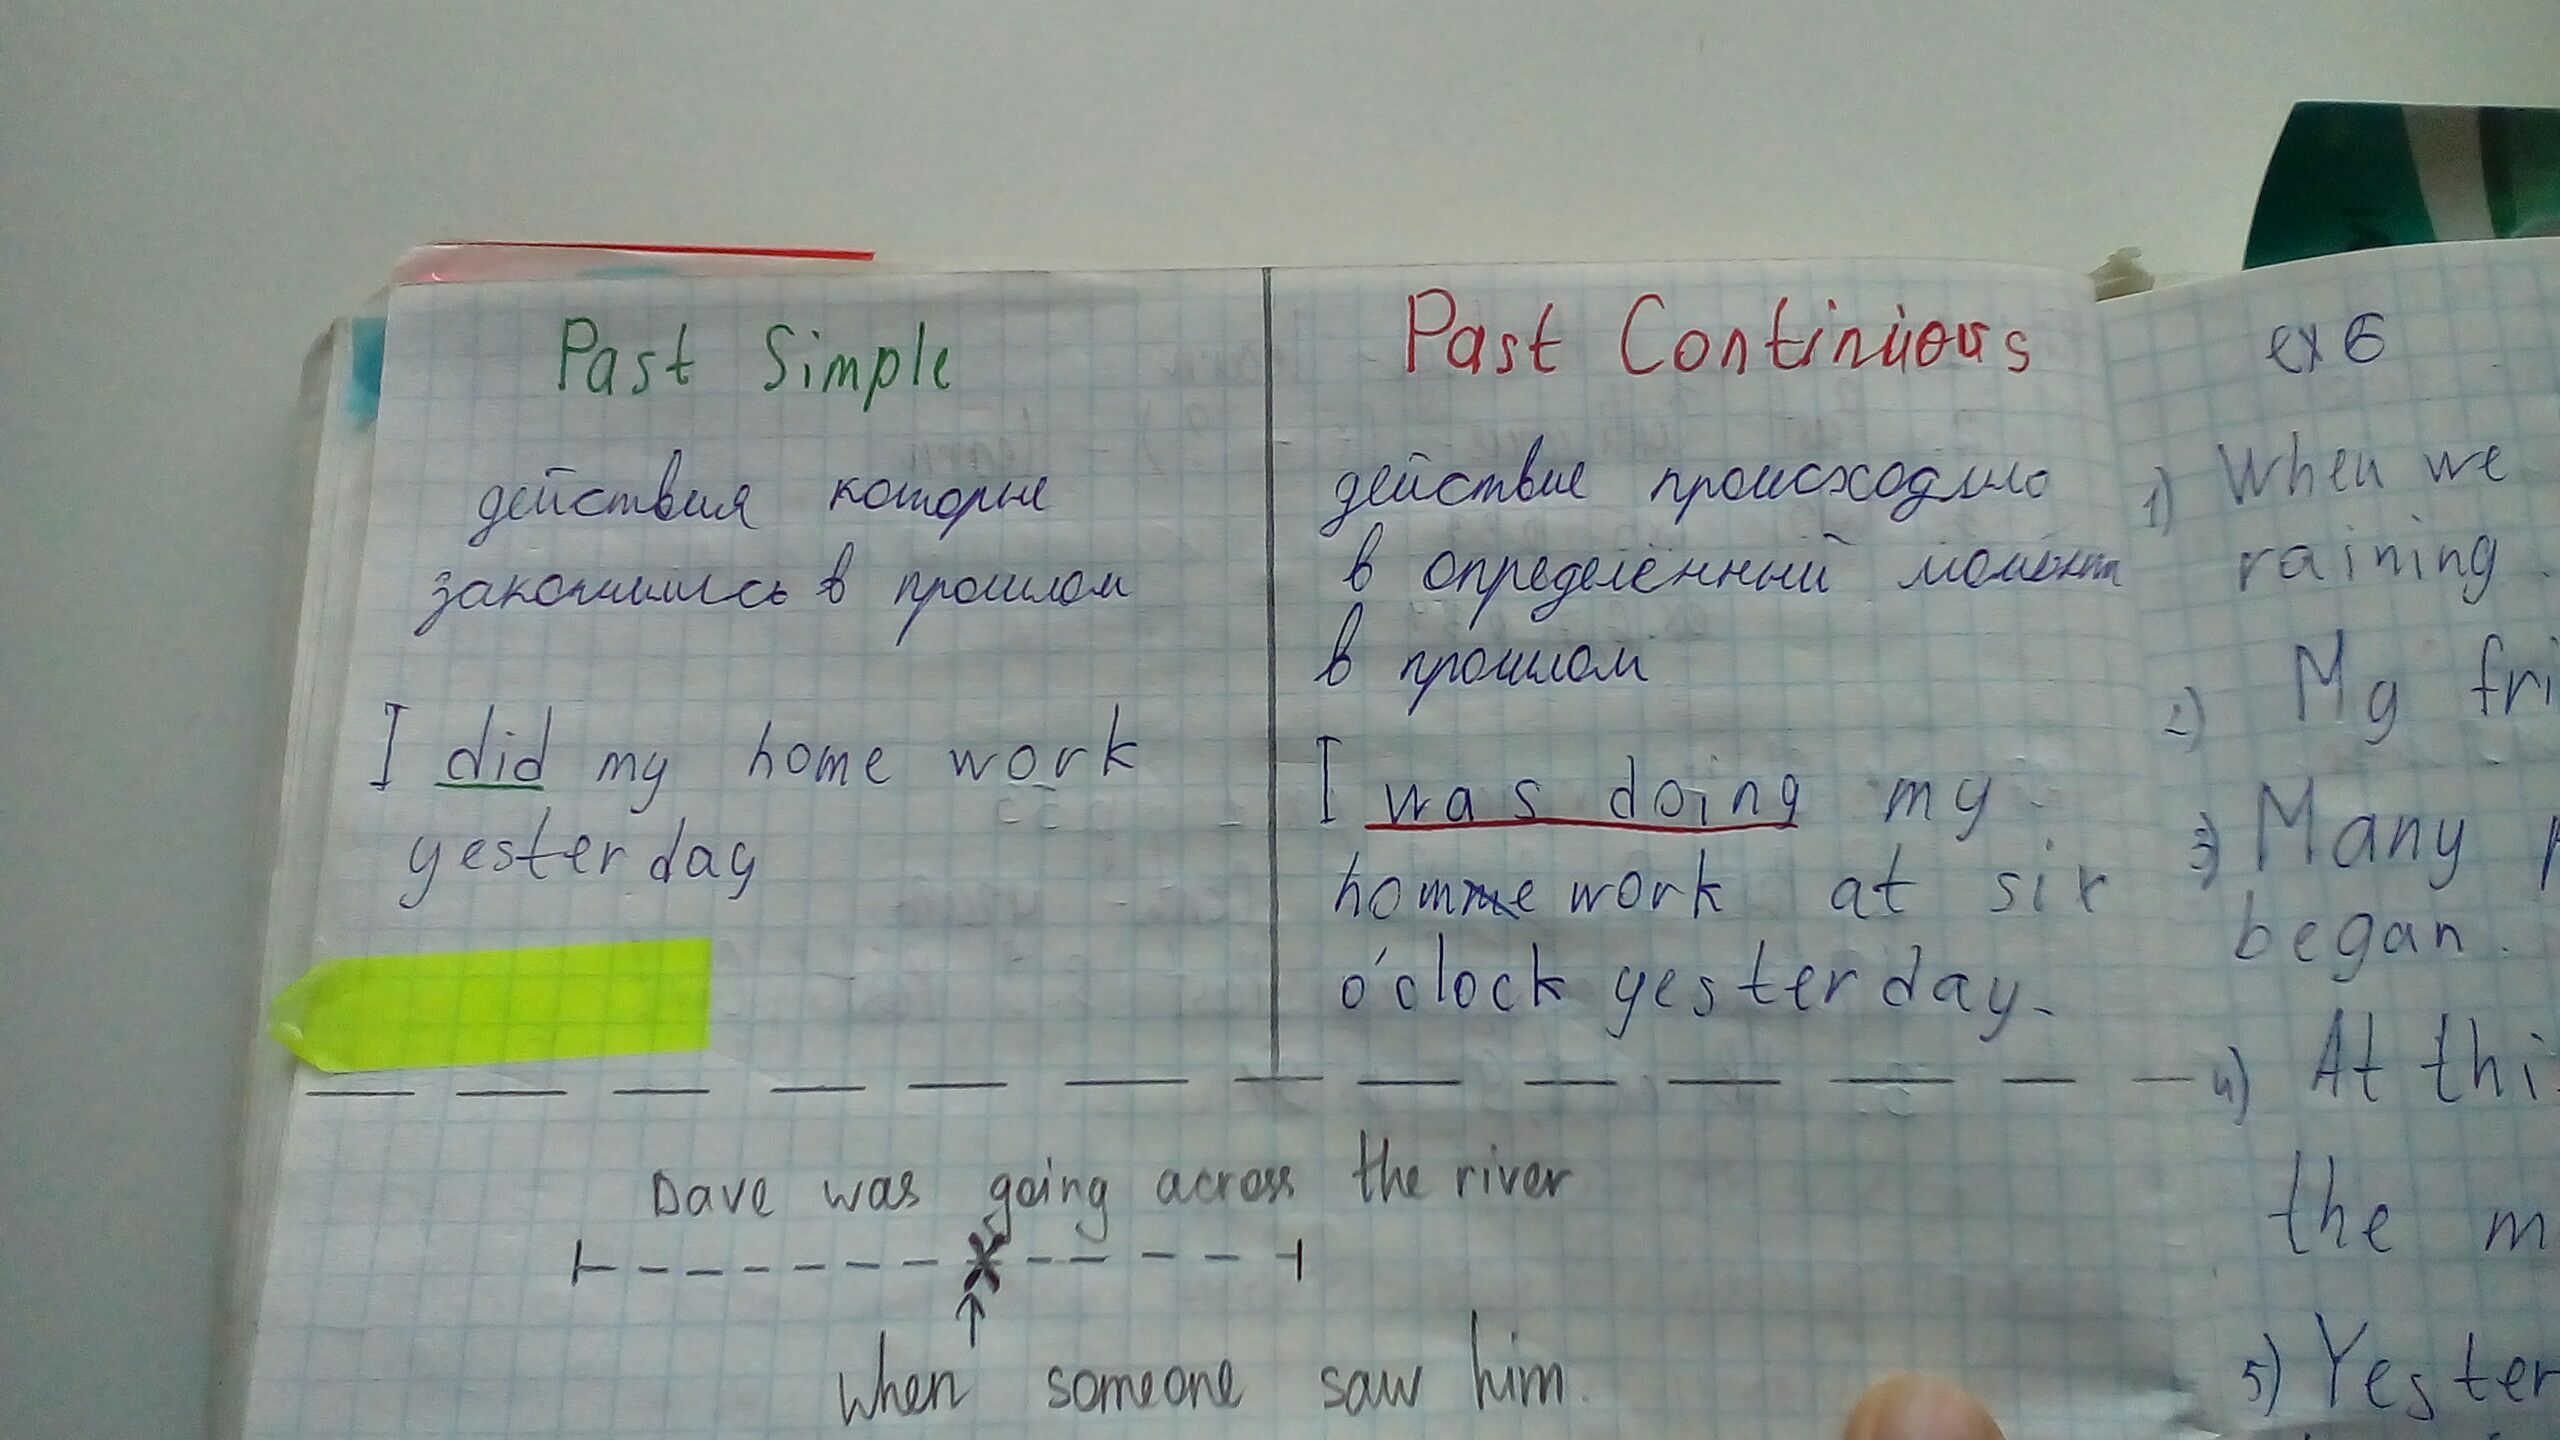 Past Simple
действия которые
закончились в прошлом
I did my home work
yesterday
Past Continuous
действие происходило
в определённый момент
в прошлом
I was doing my
home work at six
o'clock yesterday.
Dave was going across the river
when someone saw him.
ex 6
1) When we
raining.
2) My fri
3) Many
began.
4) At thi
the m
5) Yester